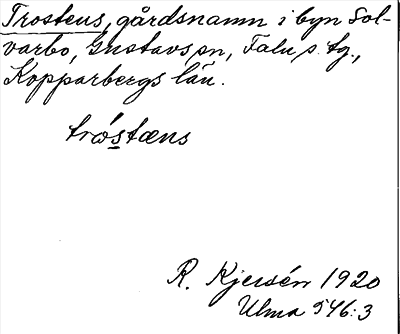 Trostens, gårdsnamn i byn Sol-
varbo, Gustavs sn, Falu s. tg.,
Kopparbergs län.
trǿstæns
R. Kjersén 1920
Ulma 546:3